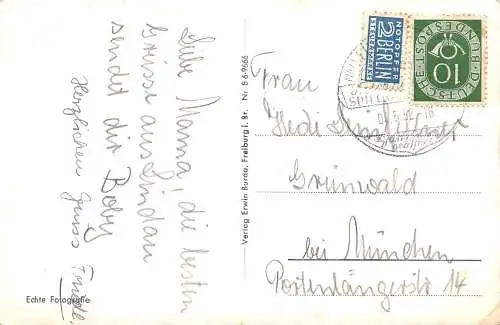 Liebe Mama! die besten
Grüsse aus Lindau
sendet dir Boby
Herzlichen Gruss
Echte Fotografie
Verlag Erwin Burda, Freiburg i. Br. Nr. B 6-9666
NOTOPFER
2 BERLIN
STEUERMARKE
DEUTSCHE BUNDESPOST
10
Frau
Hedi
Grünwald
bei München
Portenlängerstr 14